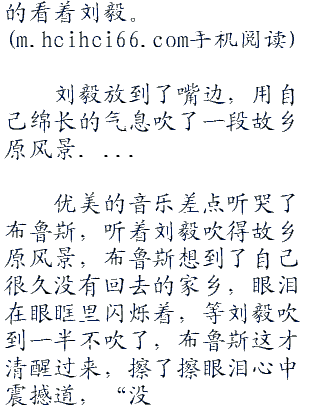 的看着刘毅。
(m.hcihci66.com手机阅读)
刘毅放到了嘴边，用自
己绵长的气息吹了一段故乡
原风景. ...
优美的音乐差点听哭了
布鲁斯，听着刘毅吹得故乡
原风景，布鲁斯想到了自己
很久没有回去的家乡，眼泪
在眼眶里闪烁着，等刘毅吹
到一半不吹了，布鲁斯这才
清醒过来，擦了擦眼泪心中
震撼道，“没